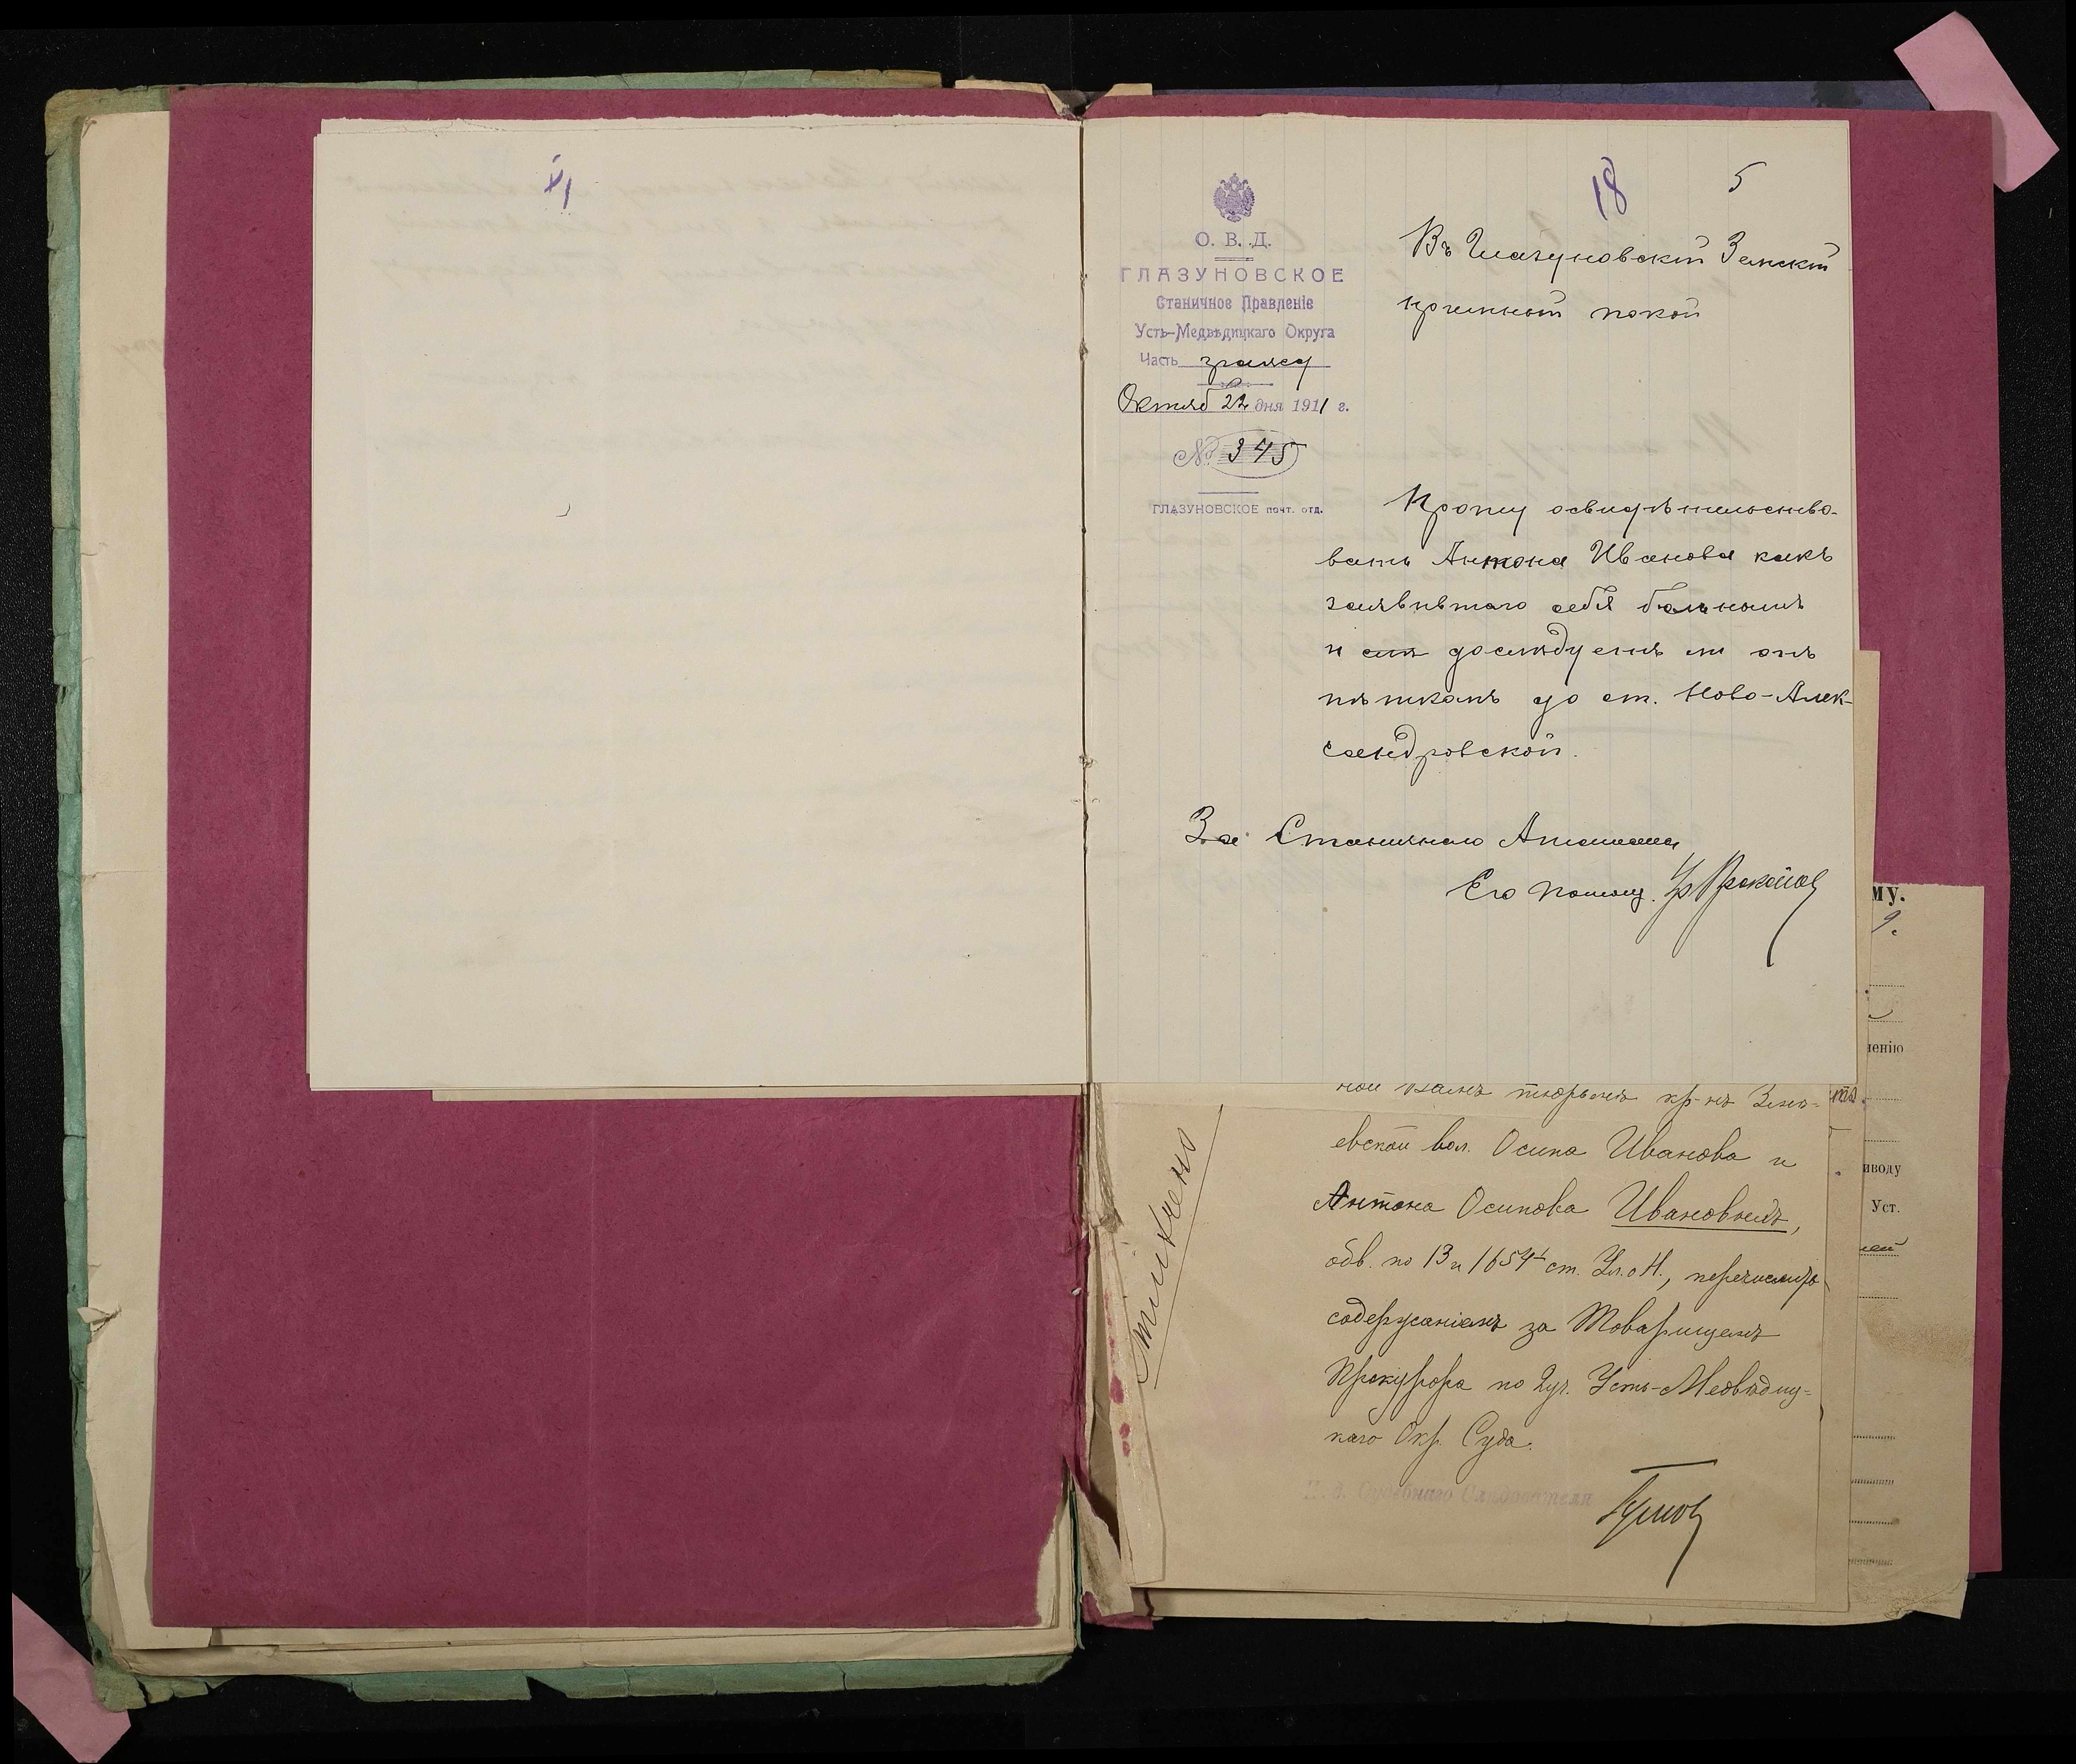 18
5
О. В. Д.
ГЛАЗУНОВСКОЕ
Станичное Правленіе
Усть-Медвѣдицкаго Округа
Часть гражд
Октяб 22 дня 1911 г.
№ 345
ГЛАЗУНОВСКОЕ почт. отд.
Въ Глазуновскій Земскій
пріемный покой
Прошу освидѣтельство-
вать Антона Иванова какъ
заявившаго себя больнымъ
и дослѣдуетъ ли онъ
пѣшкомъ до ст. Ново-Алек-
сандровской.
За Станичнаго Атамана
Его помощ.
тюрьмѣ кр-нъ
евской вол. Осипа Иванова и
Антона Осипова Ивановыхъ,
обв. по 13 и 1654¹ ст. Ул. о Н., перечислить
содержаніемъ за Товарищемъ
Прокурора по 2 уч. Усть-Медвѣдиц-
каго Окр. Суда.
И. д. Судебнаго Слѣдователя
му.
ченію
иводу
Уст.